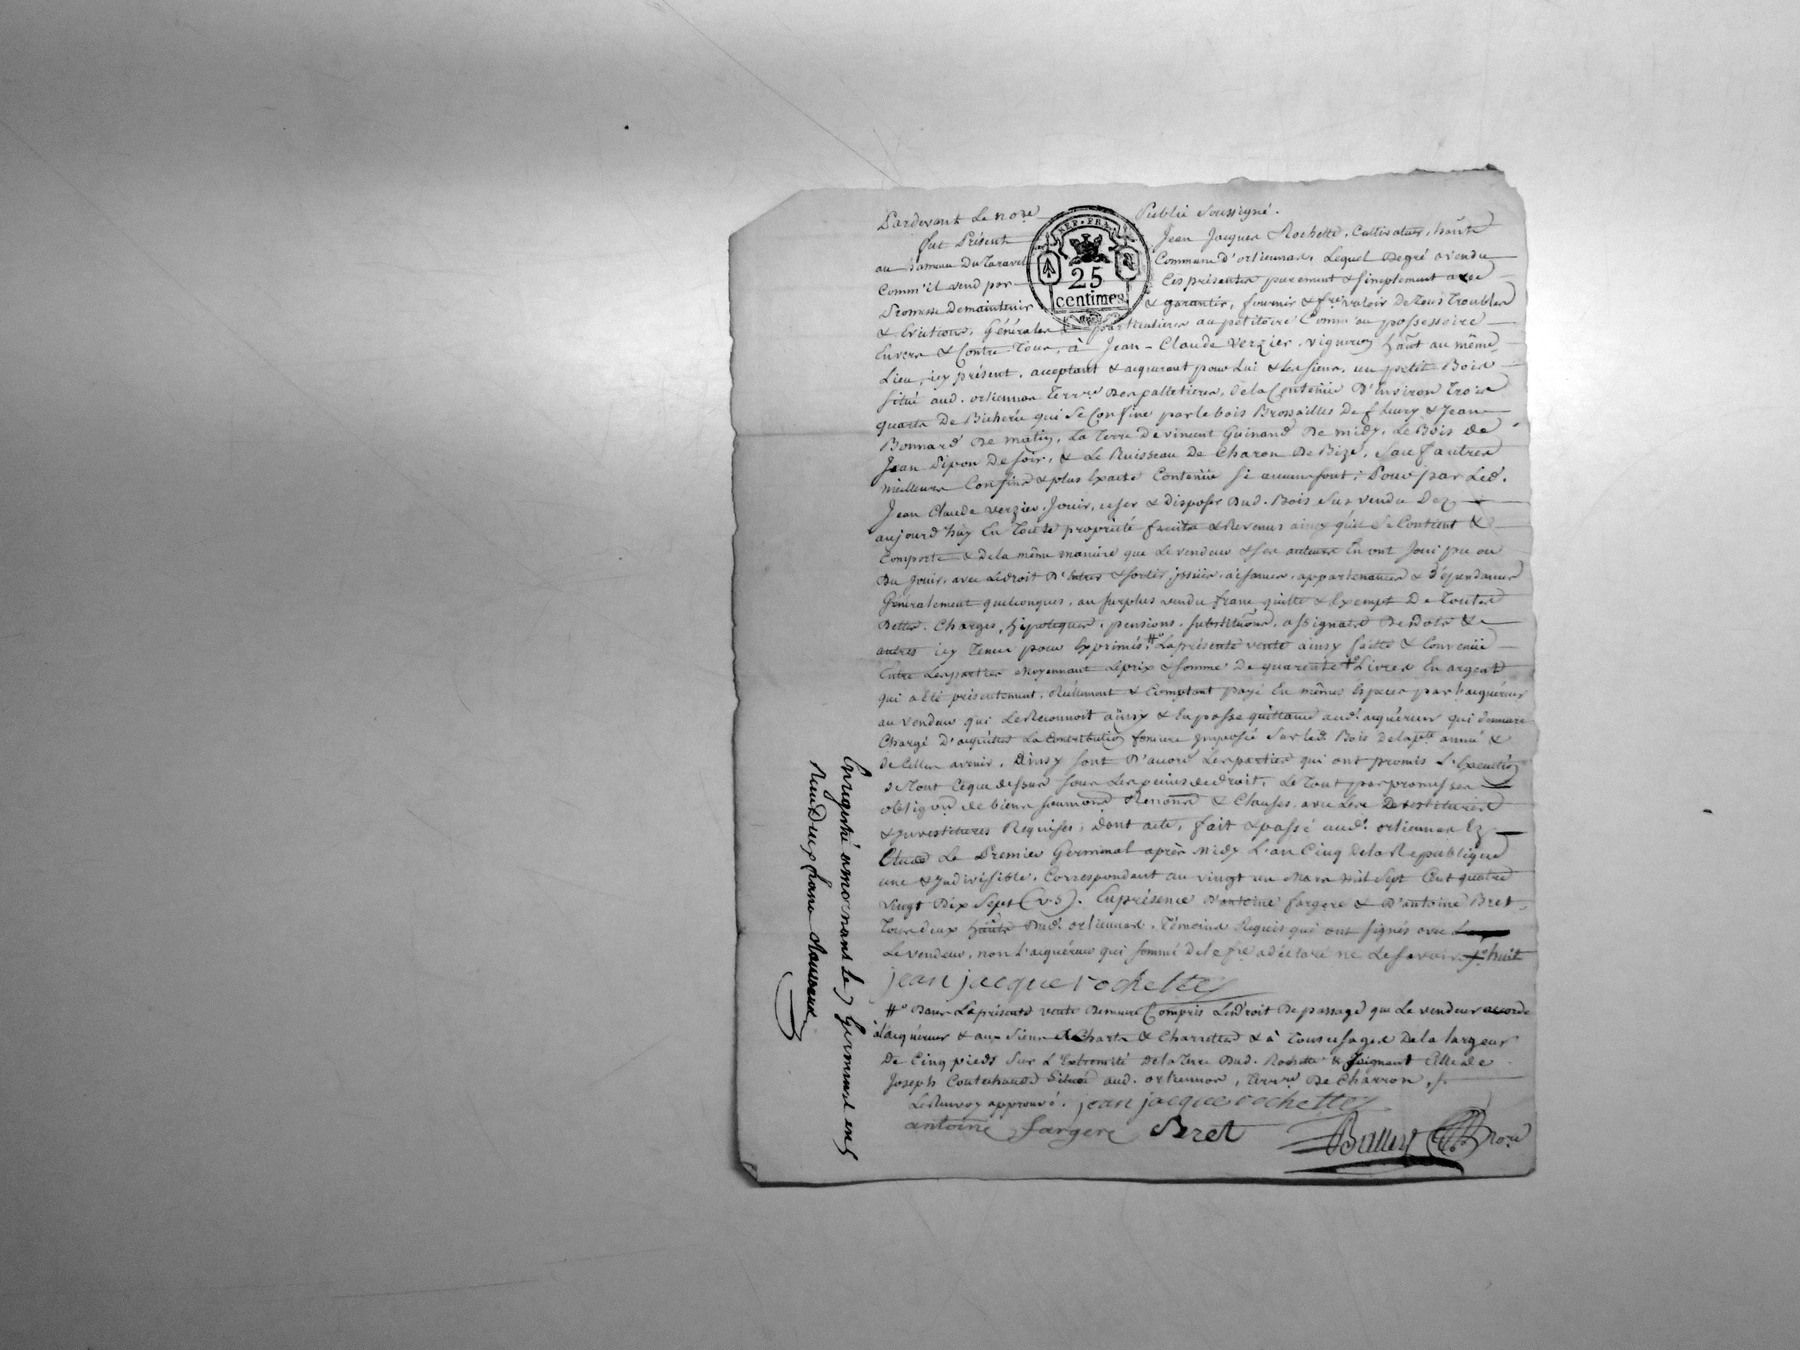 Pardevant Le no.re Public Soussigné.
fut Présent Jean Jacques Rochette, Cultivateur, haut.t
au hameau Du Taravel Commune d'orliennas, Lequel De gré a vendu
Comm'il vend par Ces présentes purement & simplement avec
Promesse De maintenir & garantir, fournir & f.re valoir De Tous Troubles
& Evictions, Générales & particulieres au petitoire Comm'au possessoire
Envers & Contre Tous, à Jean-Claude Verzier, vigneron hab.t au même
Lieu, icy présent, acceptant & acquerant pour Lui & Les siens, un petit Bois
situé aud. orliennas Terr.re Des palletieres, de la Contenüe D'Environ Trois
quarts De Bicherée qui se Confine par le bois Brossailles de fleury & Jean
Bonnard De matin, La Terre De vincent Guinand De midy, Le Bois de
Jean Pipon De soir, & Le Ruisseau de Charon De Bize, Sauf autres
meilleurs Confins & plus Exacte Contenüe si aucuns sont; Pour par Led.
Jean Claude Verzier, Jouir, user & Disposer Dud. Bois sus vendu Dez
aujourd'huy En Toute propriété fruits & Revenus ainsy qu'il se Contient &
Comporte & de la même maniere que Le vendeur & ses auteurs En ont Joui pu ou
Du Jouir, avec Le droit D'Entrer & sortir, issües, aisances, appartenances & Dépendances
Généralement quelconques, au surplus vendu franc quitte & Exempt De Toutes
Dettes, Charges, hipoteques, pensions, substitutions, assignat.s De Dots &
autres icy Tenus pour Exprimés; # La présente vente ainsy faitte & Convenüe
Entre Les parties moyennant Le prix & somme De quarante Livres En argent
qui a été présentement, Réellement & Comptant payé En mêmes Especes par l'acquéreur
au vendeur qui Le Reconnoit ainsy & En passe quittance aud. acquéreur qui demeure
Chargé D'acquitter La Contribution fonciere Imposée sur led. Bois De la p.te année &
de Celles avenir. Ainsy sont D'accord Les parties qui ont promis L'Execution
De Tout Ce que dessus sous Les peines de droit, Le Tout par promesses
oblig.ons de biens soumons Renons & Clauses, avec Les Devestitures
& Investitures Requises; Dont acte, fait & passé aud. orliennas Ez
Etude Le Premier Germinal après midy L'an Cinq De la République
une & Indivisible, Correspondant au vingt un Mars mil sept Cent quatre
vingt Dix Sept (v.s). En présence D'antoine fargere & D'antoine Bret,
Tous deux hab.ts Dud. orliennas, Témoins Requis qui ont signés avec
Le vendeur, non L'acquéreur qui sommé de le f.re a déclaré ne Le savoir. huit
jean jacque rochette
# Dans La présente vente Demeure Compris Le droit De passage que Le vendeur accorde
à l'acquéreur & aux siens à Chars & Charrettes & à Tous usages De la largeur
De Cinq pieds sur L'Extremité de la Terre Dud. Rochette & Joignant Celle de
Joseph Coutuchaud située aud. orliennas, Terr.re De Charron,
Le Renvoy approuvé. jean jacque rochette
antoine fargere Bret
no.re
REP. FRA.
25
centimes
Enregistré a mornant le Germinal en 5
Reçu Deux francs